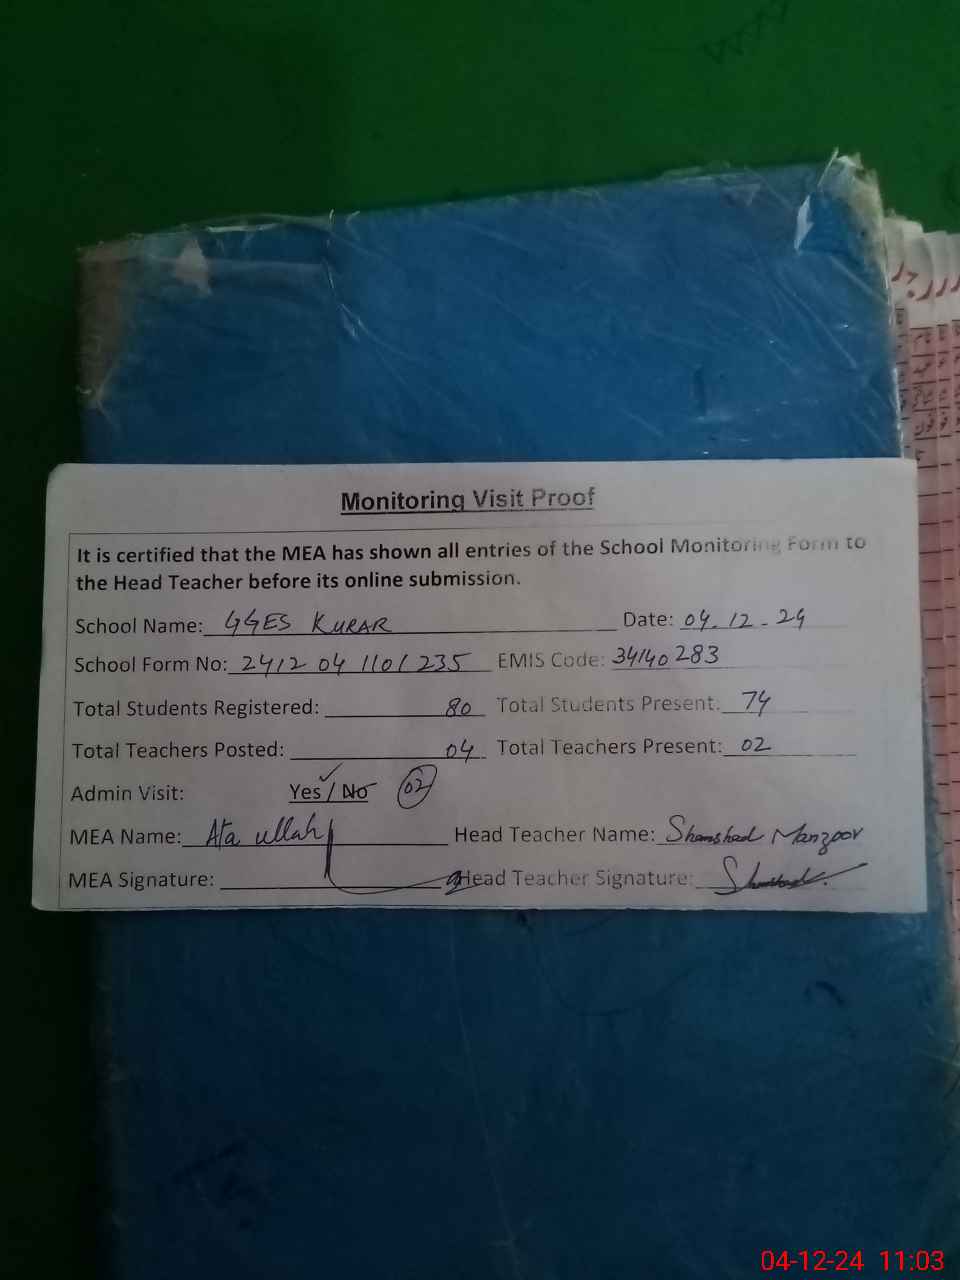 Monitoring Visit Proof
It is certified that the MEA has shown all entries of the School Monitoring Form to
the Head Teacher before its online submission.
School Name: GGES KURAR Date: 04.12-24
School Form No: 2412 04 1101 235 EMIS Code: 34140283
Total Students Registered: 80 Total Students Present: 74
Total Teachers Posted: 04 Total Teachers Present: 02
Admin Visit: Yes / No 02
MEA Name: Ata ullah Head Teacher Name: Shamshad Manzoor
MEA Signature: Head Teacher Signature:
04-12-24 11:03